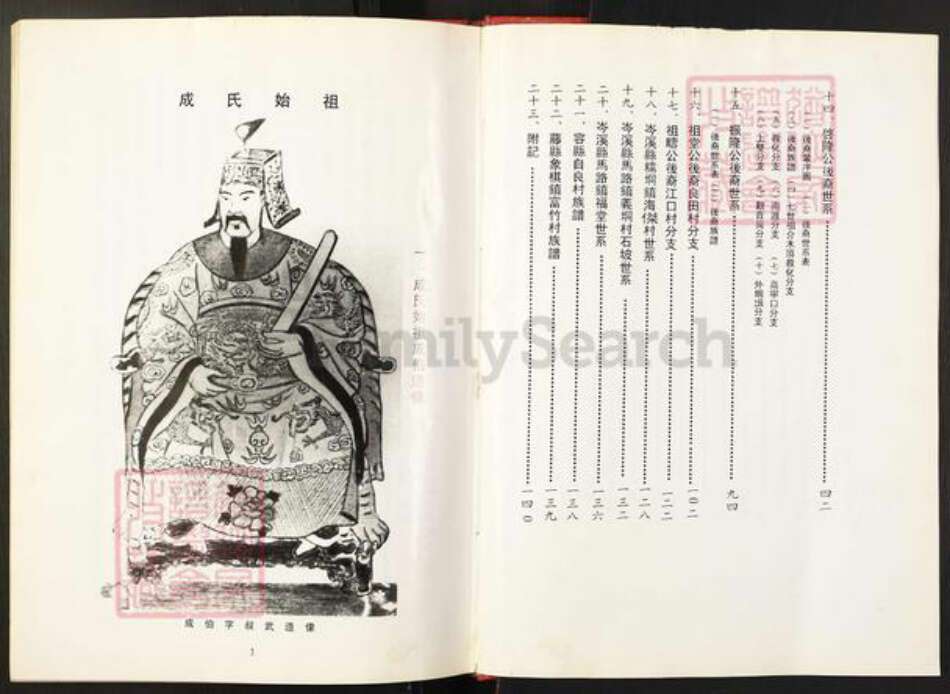 十四、啓隆公後裔世系 四二
後裔世系表
後裔族譜 (四)七世祖分木須教化分支
(五)教化分支 (六)南渡分支 (七)高寧口分支
(八)上雙分支 (九)觀音岡分支 (十)分支
十五、振隆公後裔世系 九四
(一)後裔世系表 (二)後裔族譜
十六、祖堂公後裔良田村分支 一〇二
十七、祖疇公後裔江口村分支 一二二
十八、岑溪縣糯垌鎮海傑村世系 一二八
十九、岑溪縣馬路鎮義垌村石坡世系 一三二
二十、岑溪縣馬路鎮福堂世系 一三六
二十一、容縣自良村族譜 一三八
二十二、藤縣象棋鎮富竹村族譜 一三九
二十三、附記 一四〇
成氏始祖
成伯字叔武造像
1
FamilySearch